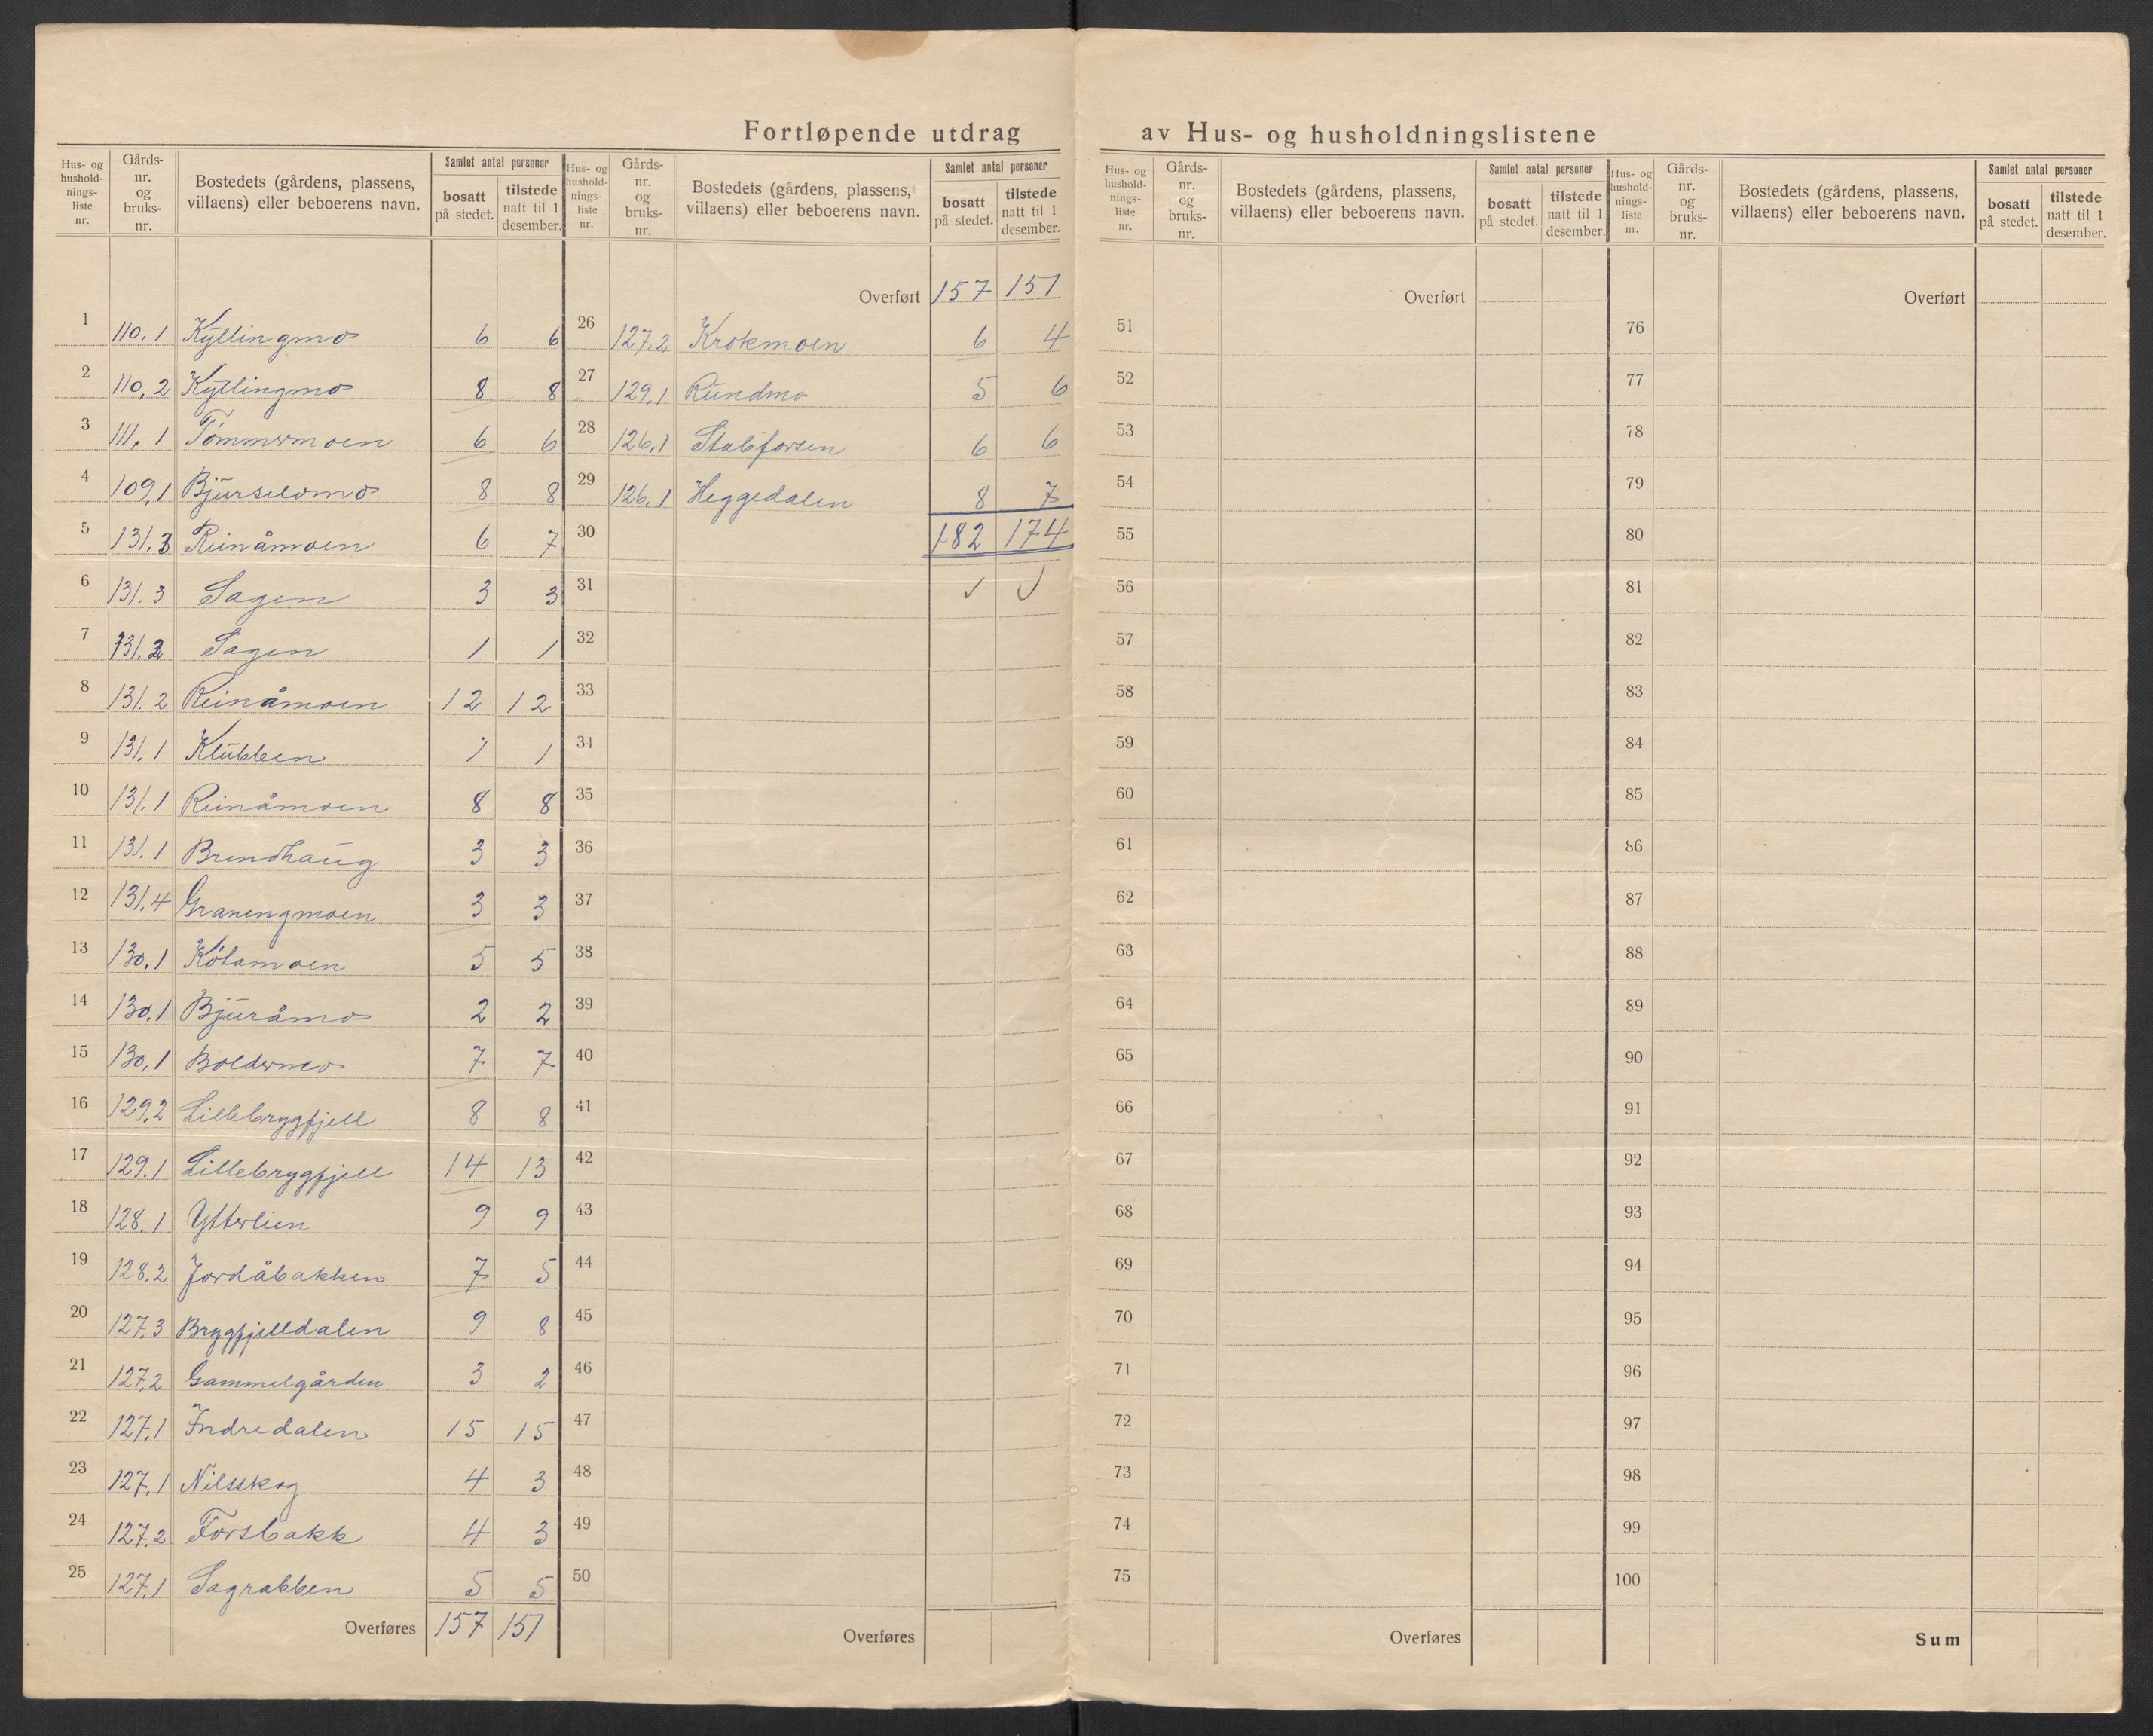 Fortløpende utdrag av Hus- og husholdningslistene
Hus- og husholdnings-liste nr. | Gårds-nr. og bruks-nr. | Bostedets (gårdens, plassens, villaens) eller beboerens navn. | Samlet antal personer | bosatt på stedet. | tilstede natt til 1 desember.
1 110,1 Kyllingmo 6 6
2 110,2 Kyllingmo 8 8
3 111,1 Tømmermoen 6 6
4 109,1 Bjurselvmo 8 8
5 131.3 Reinåmoen 6 7
6 131.3 Sagen 3 3
7 131.2 Sagen 1 1
8 131.2 Reinåmoen 12 12
9 131.1 Klubben 1 1
10 131.1 Reinåmoen 8 8
11 131.1 Brendhaug 3 3
12 131.4 Granengmoen 3 3
13 130,1 Kåtamoen 5 5
14 130,1 Bjuråmo 2 2
15 130,1 Boldermo 7 7
16 129,2 Lillebryggfjell 8 8
17 129.1 Lillebryggfjell 14 13
18 128.1 Ytterlien 9 9
19 128.2 Jordåbakken 7 5
20 127.3 Bryggfjelldalen 9 8
21 127,2 Gammelgården 3 2
22 127,1 Indredalen 15 15
23 127,1 Nilsskog 4 3
24 127,2 Forsbakk 4 3
25 127,1 Sagrabben 5 5
Overføres 157 151
Hus- og husholdnings-liste nr. | Gårds-nr. og bruks-nr. | Bostedets (gårdens, plassens, villaens) eller beboerens navn. | Samlet antal personer | bosatt på stedet. | tilstede natt til 1 desember.
Overført 157 151
26 127.2 Krokmoen 6 4
27 129,1 Rundmo 5 6
28 126,1 Stabforsen 6 6
29 126,1 Heggedalen 8 7
30 182 174
31 ✓ ✓
32
33
34
35
36
37
38
39
40
41
42
43
44
45
46
47
48
49
50
Overføres
Hus- og husholdnings-liste nr. | Gårds-nr. og bruks-nr. | Bostedets (gårdens, plassens, villaens) eller beboerens navn. | Samlet antal personer | bosatt på stedet. | tilstede natt til 1 desember.
Overført
51
52
53
54
55
56
57
58
59
60
61
62
63
64
65
66
67
68
69
70
71
72
73
74
75
Overføres
Hus- og husholdnings-liste nr. | Gårds-nr. og bruks-nr. | Bostedets (gårdens, plassens, villaens) eller beboerens navn. | Samlet antal personer | bosatt på stedet. | tilstede natt til 1 desember.
Overført
76
77
78
79
80
81
82
83
84
85
86
87
88
89
90
91
92
93
94
95
96
97
98
99
100
Sum